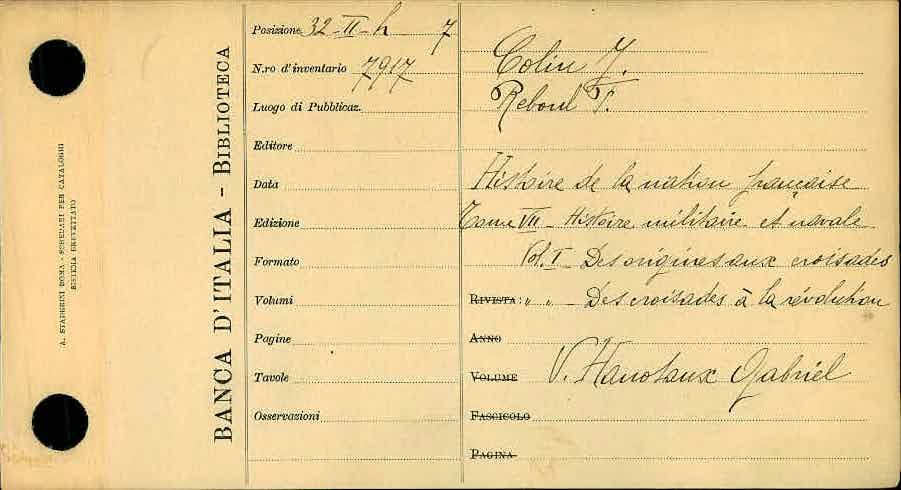 Posizione 32-II-h 7
N.ro d'inventario 7917
Luogo di Pubblicaz.
Editore
Data
Edizione
Formato
Volumi
Pagine
Tavole
Osservazioni
Colin J.
Reboul F.
Histoire de la nation française
Tome VII - Histoire militaire et navale
Vol. I - Des origines aux croisades
RIVISTA: " " - Des croisades à la révolution
ANNO
VOLUME V. Hanotaux Gabriel
FASCICOLO
PAGINA
BANCA D'ITALIA - BIBLIOTECA
A. STADERINI ROMA - SCHEDARI PER CATALOGHI
SISTEMA BREVETTATO